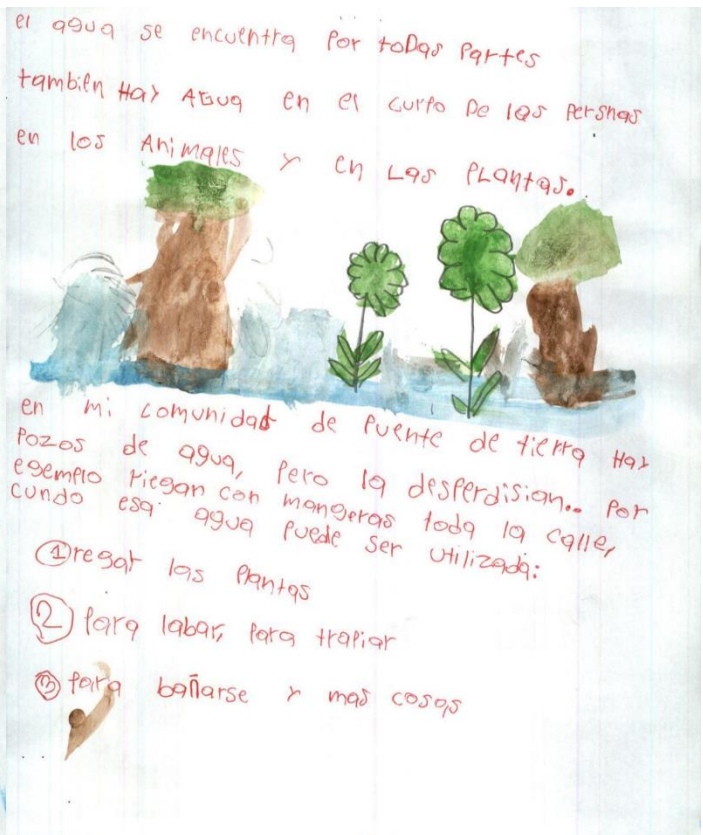 el agua se encuentra por toDas partes
también HaY AGua en el curpo De las persnas
en los Animales y en Las PLantas.
en mi comunidad de puente de tierra Hay
Pozos de agua, pero la desperdisian.. por
esemplo riegan con mangeras toda la calle,
cundo esa agua puede ser utilizada:
① regar las plantas
② para labar, para trapiar
③ para bañarse y mas cosas